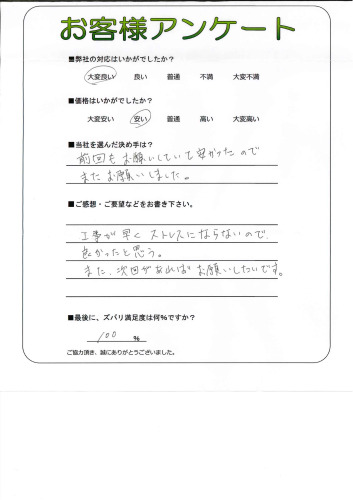 お客様アンケート
■弊社の対応はいかがでしたか?
大変良い 良い 普通 不満 大変不満
■価格はいかがでしたか?
大変安い 安い 普通 高い 大変高い
■当社を選んだ決め手は?
前回もお願いしていて良かったので
またお願いしました。
■ご感想・ご要望などをお書き下さい。
工事が早くストレスにならないので、
良かったと思う。
また、次回があればお願いしたいです。
■最後に、ズバリ満足度は何%ですか?
100 %
ご協力頂き、誠にありがとうございました。